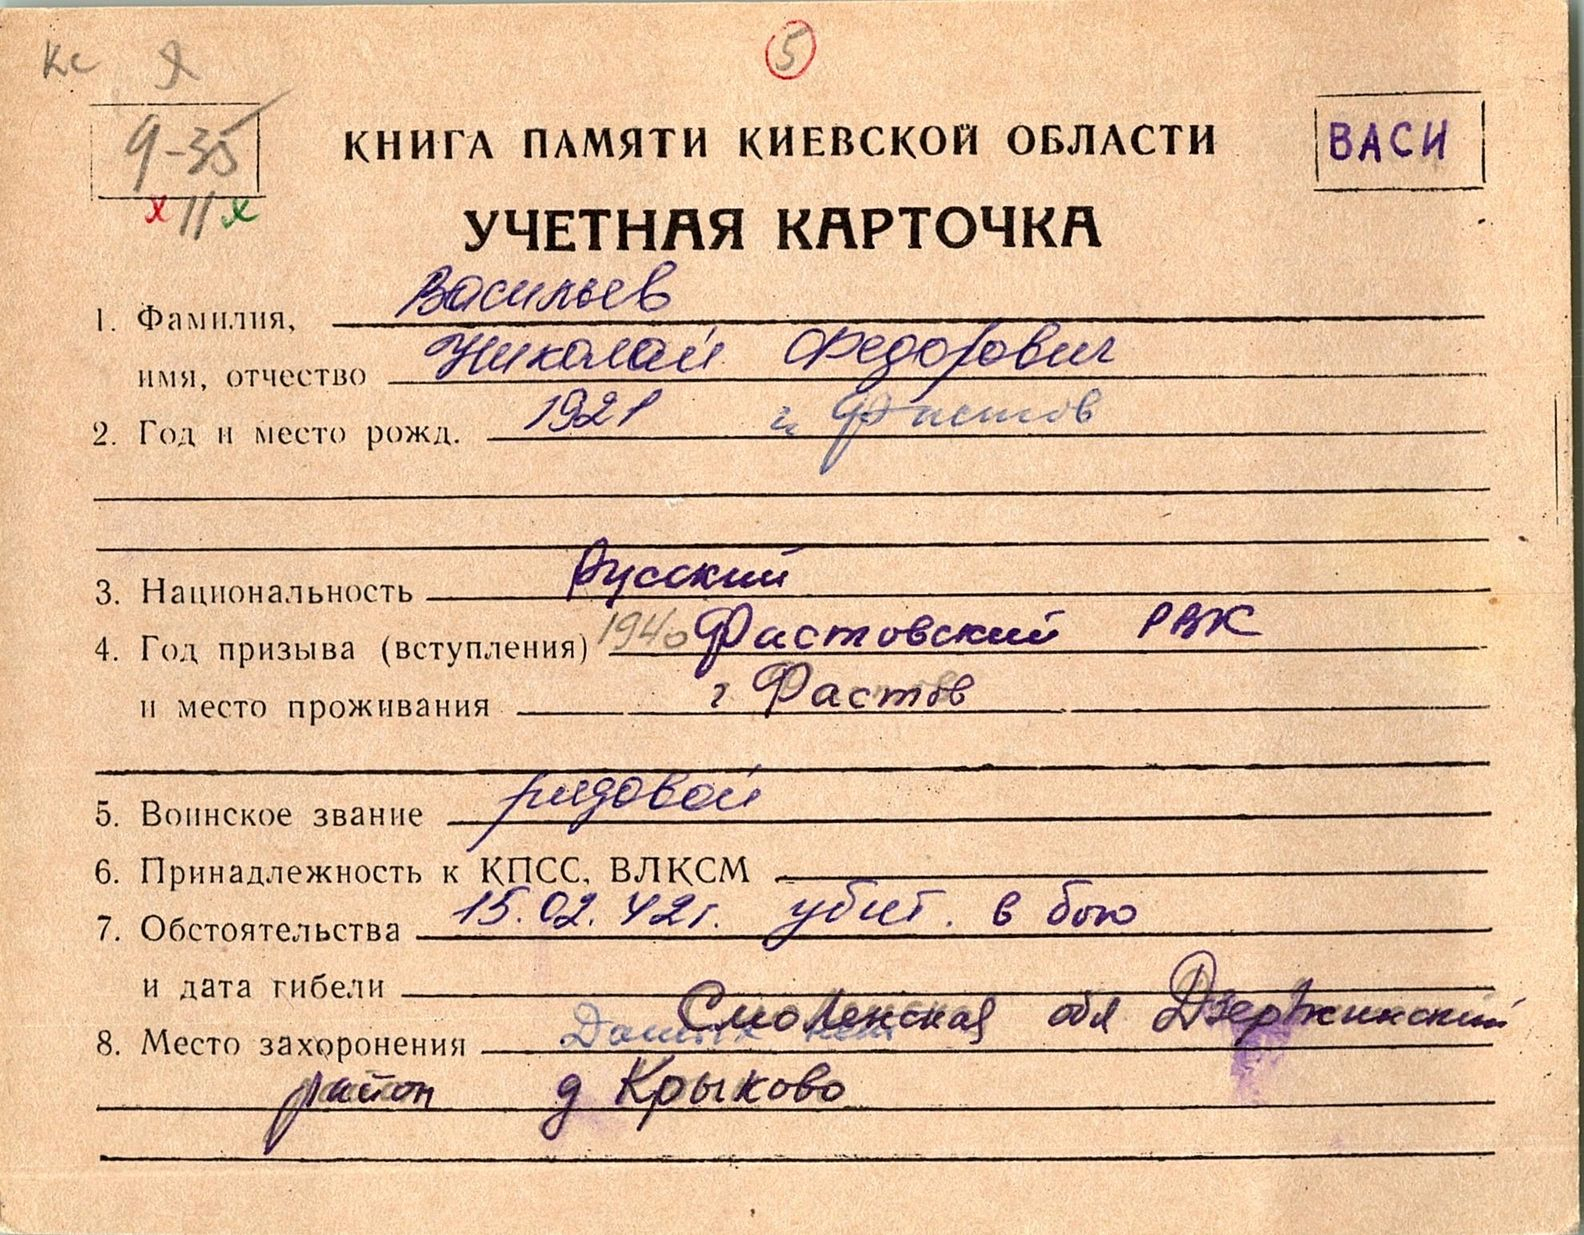 Кс Я
5
9-35
х 11 х
КНИГА ПАМЯТИ КИЕВСКОЙ ОБЛАСТИ
ВАСИ
УЧЕТНАЯ КАРТОЧКА
1. Фамилия, Васильев
имя, отчество Николай Федорович
2. Год и место рожд. 1921 г. Фастов
3. Национальность Русский
4. Год призыва (вступления) 1940 Фастовский РВК
и место проживания г Фастов
5. Воинское звание рядовой
6. Принадлежность к КПСС, ВЛКСМ
7. Обстоятельства 15.02.42г. убит. в бою
и дата гибели
8. Место захоронения Смоленская обл Дзержинский
район д Крыково